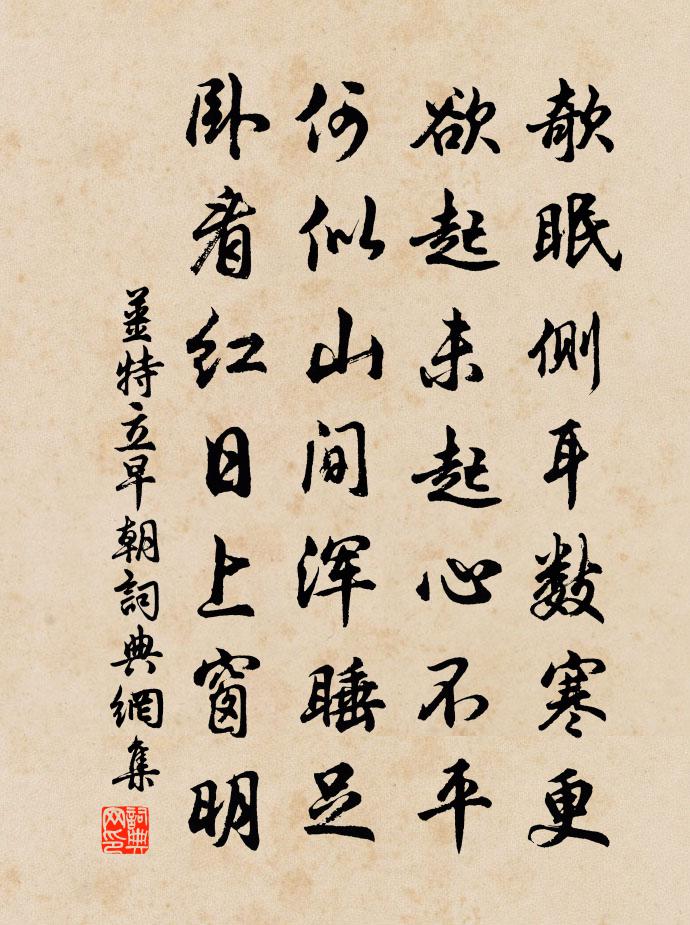 欹眠侧耳数寒更
欲起未起心不平
何似山间浑睡足
卧看红日上窗明
姜特立早朝詞典網集
詞典网印